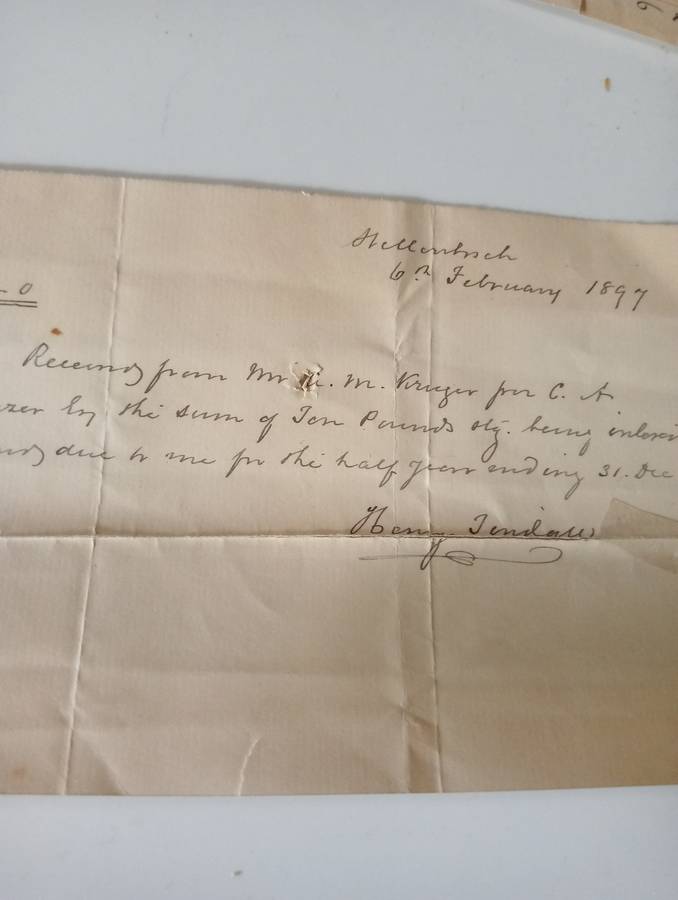 Stellenbosch
6th February 1897
0
Received from Mr M. Kruger for C. A.
by the sum of Ten Pounds stg. being interest
due to me for the half year ending 31. Dec
Henry Tindall